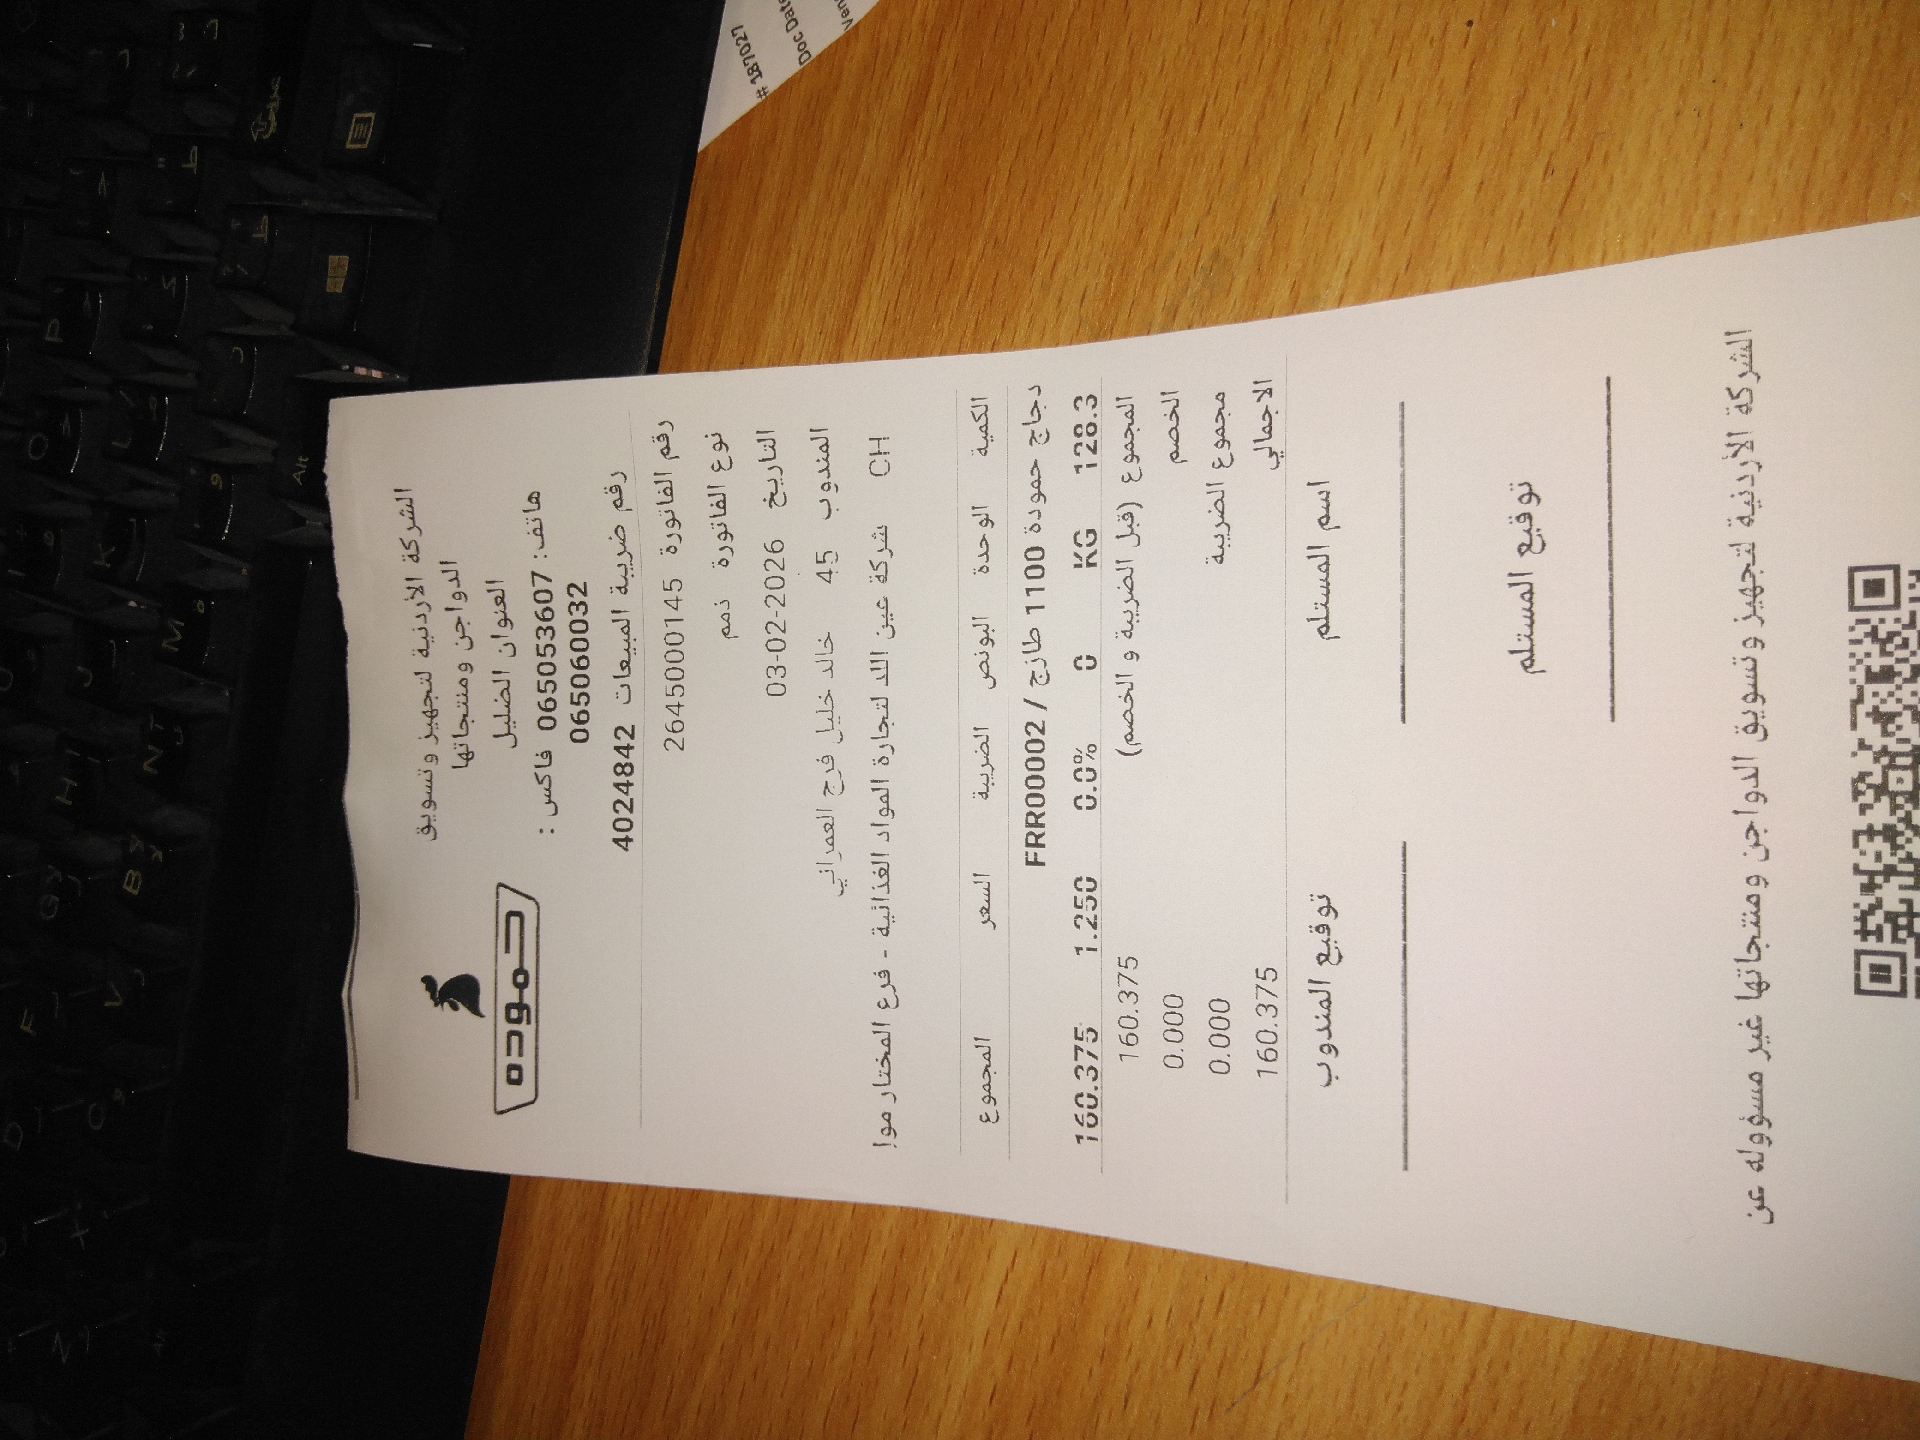 حموده
الشركة الأردنية لتجهيز وتسويق
الدواجن ومنتجاتها
العنوان الضليل
هاتف: 065053607 فاكس :
065060032
رقم ضريبة المبيعات 4024842
رقم الفاتورة 2645000145
نوع الفاتورة ذمم
التاريخ 03-02-2026
المندوب 45 خالد خليل فرح العمراني
CH شركة عين اللد لتجارة المواد الغذائية - فرع المختار موا
الكمية الوحدة البونص الضريبة السعر المجموع
دجاج حمودة 1100 طازج / FRR00002
128.3 KG 0 0.0% 1.250 160.375
المجموع (قبل الضريبة و الخصم) 160.375
الخصم 0.000
مجموع الضريبة 0.000
الاجمالي 160.375
اسم المستلم توقيع المندوب
توقيع المستلم
الشركة الأردنية لتجهيز وتسويق الدواجن ومنتجاتها غير مسؤوله عن
# 187027
Doc Date